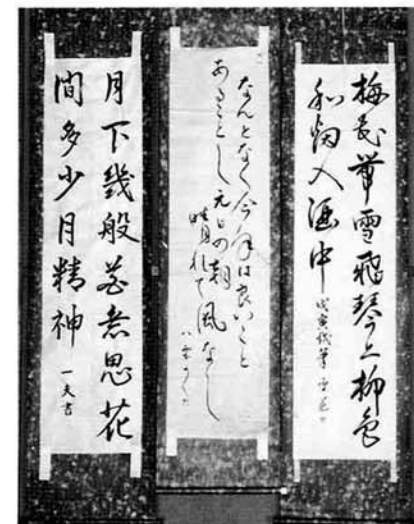 梅花帯雪飛琴上柳色
和烟入酒中 戊寅試筆
なんとなく今年は良いこと
あることし元日の朝
晴れて風なし
月下幾般花意思花
間多少月精神 一夫書